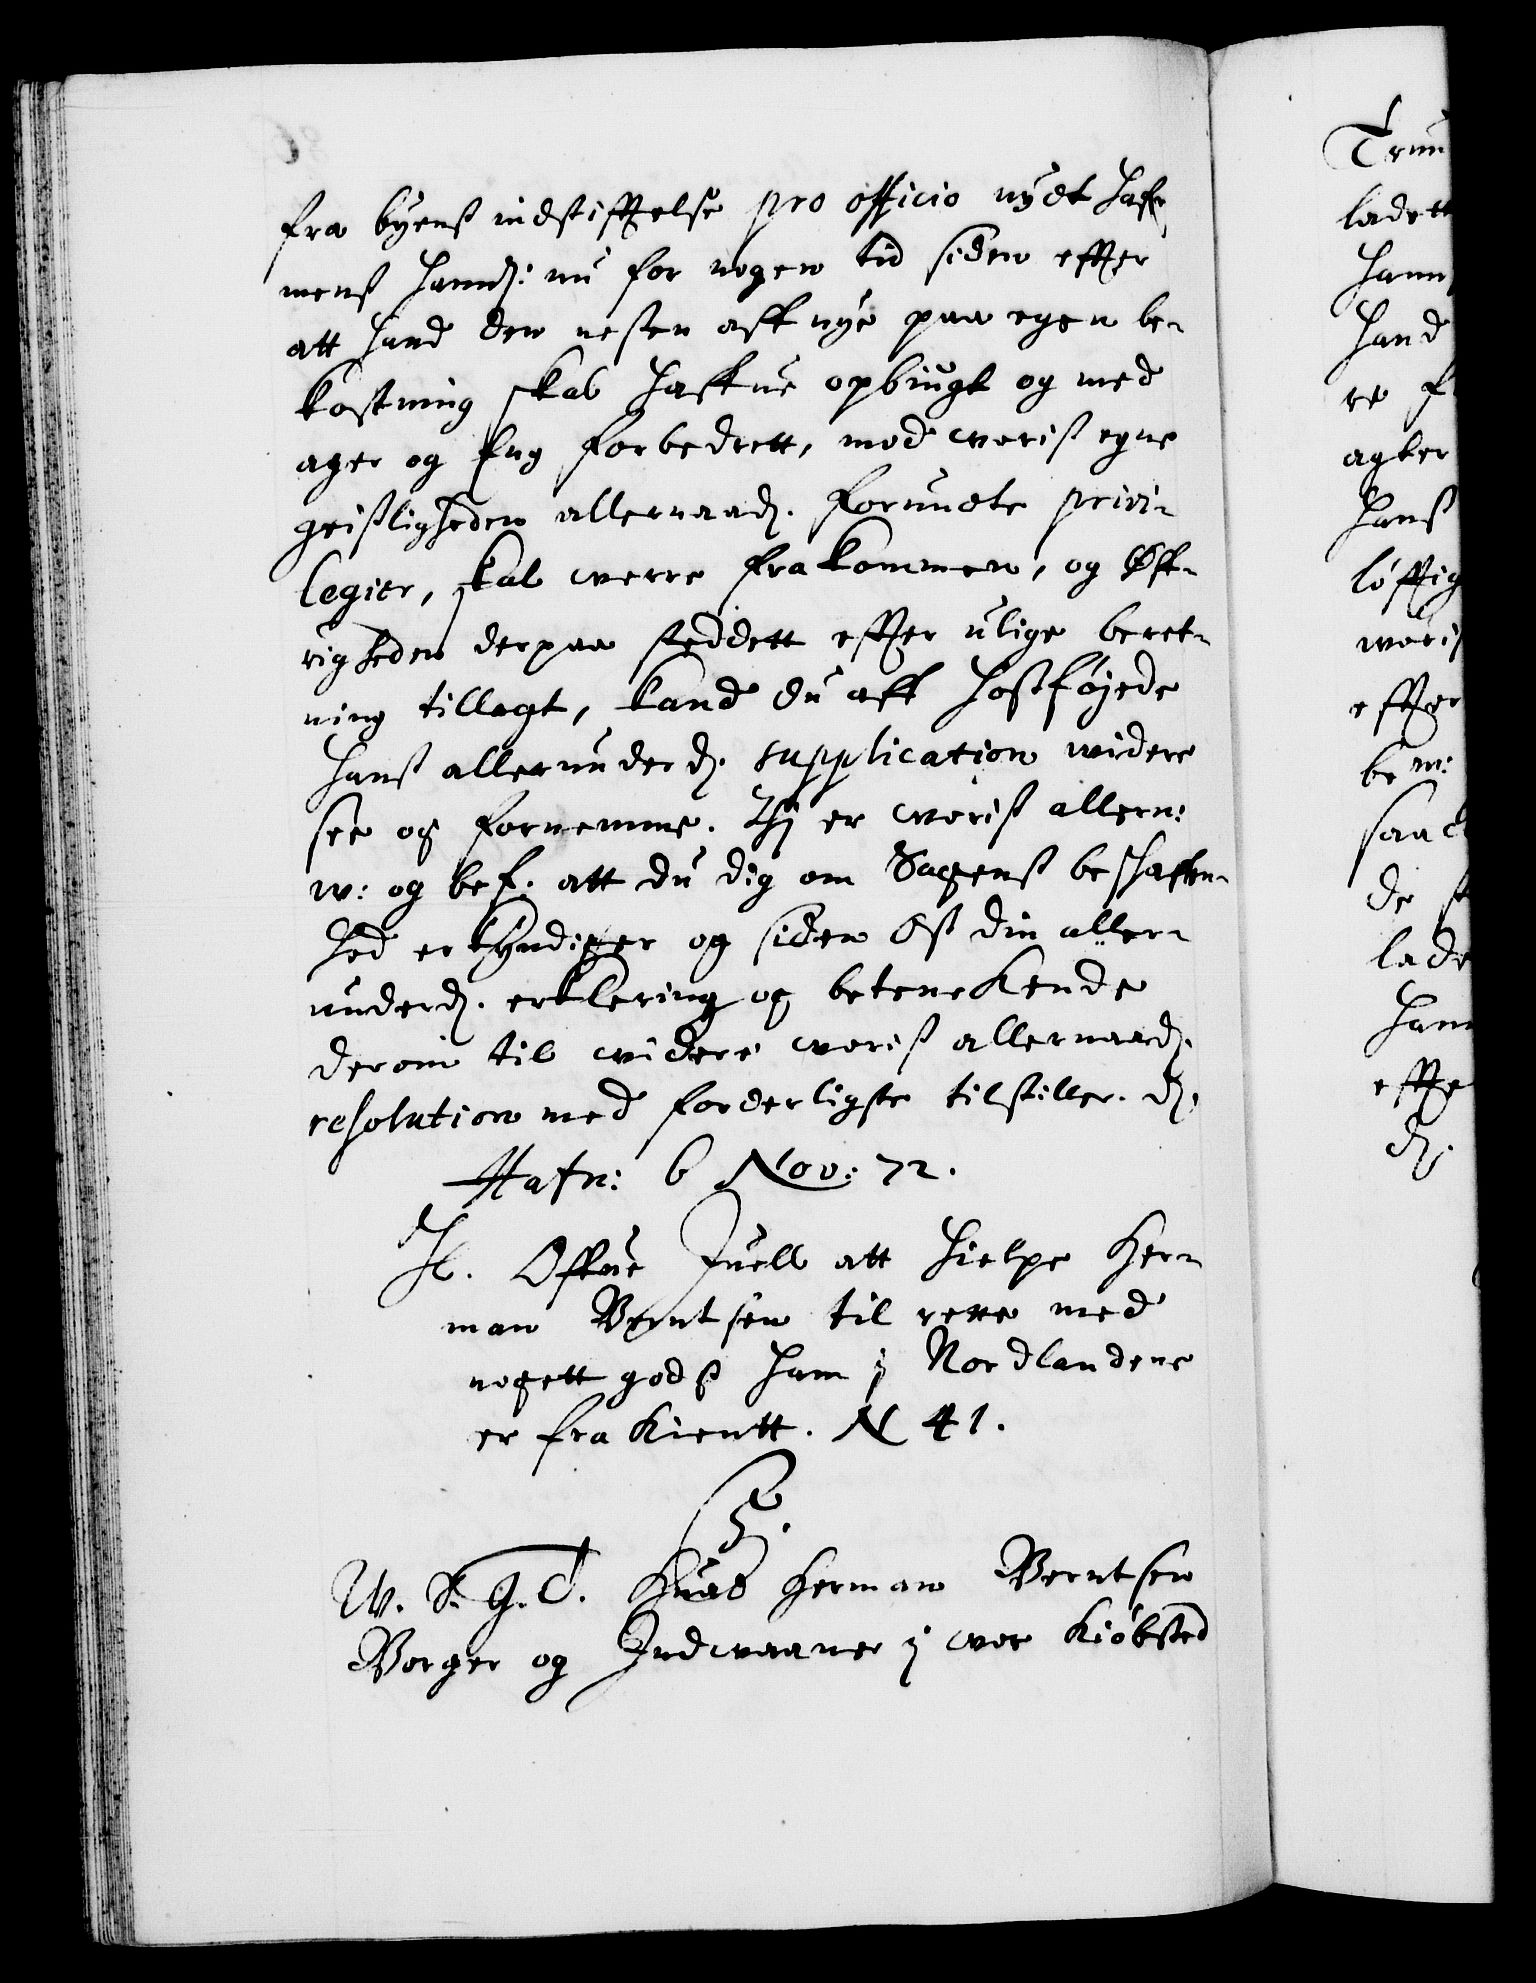 fra byenß indstifftelse pro officio nydt hafr
menß hannd: nu for nogen tid siden effter
att hand den nesten aff nye paa egen be-
kostning skal haffue opbiugt og med
ager og Eng forbedrett, mod woriß egne
geistligheden allernaadg. forundte privi-
legier, skal werre frakommen, og Øff-
righeden derpaa steddett effter ulige beret-
ning tillagt, kand du aff hoßføyede
hanß allerunderdg. supplication widere
see og fornemme. Thj er woriß allern:
w: og bef. att du dig om Sagenß beschaffen-
hed erkyndiger og siden Oß din aller-
underdg. erklering og betenckende
derom til widere woriß allernaadg.
resolution med forderligste tilstiller. dg.
Hafn: 6 Nov: 72.
H. Offue Juell att hielpe Her-
man Berntsen til rette med
nogett godß ham j Nordlandene
er frakientt. N 41.
C5.
W. S. G. T. Huad Herman Berntsen
Borger og Indwaaner j wor Kiøbsted
Truu
ladett
hann
hand
re f
agter
hanß
løfftig
woriß
effter
be m:
saa
de
lade
ham
effte
dg.